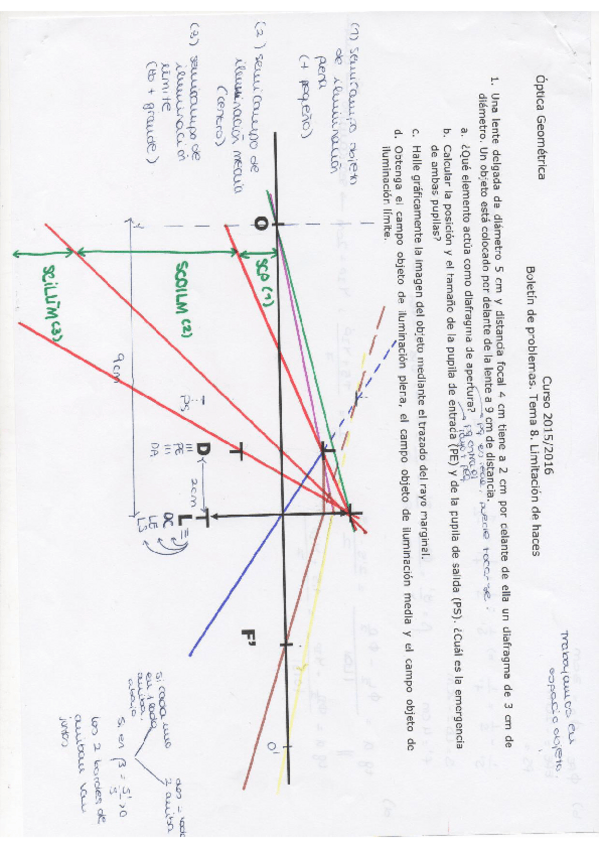 Curso 2015/2016
Óptica Geométrica
Boletín de problemas. Tema 8. Limitación de haces
Trabajamos en
espacio objeto.
1. Una lente delgada de diámetro 5 cm y distancia focal 4 cm tiene a 2 cm por delante de ella un diafragma de 3 cm de
diámetro. Un objeto está colocado por delante de la lente a 9 cm de distancia.
a. ¿Qué elemento actúa como diafragma de apertura?
b. Calcular la posición y el tamaño de la pupila de entrada (PE) y de la pupila de salida (PS). ¿Cuál es la emergencia
de ambas pupilas?
c. Halle gráficamente la imagen del objeto mediante el trazado del rayo marginal.
d. Obtenga el campo objeto de iluminación plena, el campo objeto de iluminación media y el campo objeto de
iluminación límite.
(1) semicampo objeto
de iluminación
plena
(+ pequeño)
(2) semicampo de
iluminación media
(centro)
(3) semicampo de
iluminación
límite
(+ grande)
O
F'
O'
SCO (1)
SCOILM (2)
SCILÍM (3)
9cm
2cm
PS
D
PE
DA
L
DC
LE
LS
si cada uno
en 1 lado
arriba
abajo
2 arriba
si en β = s'/s > 0
los 2 bordes de
arriba van
juntos